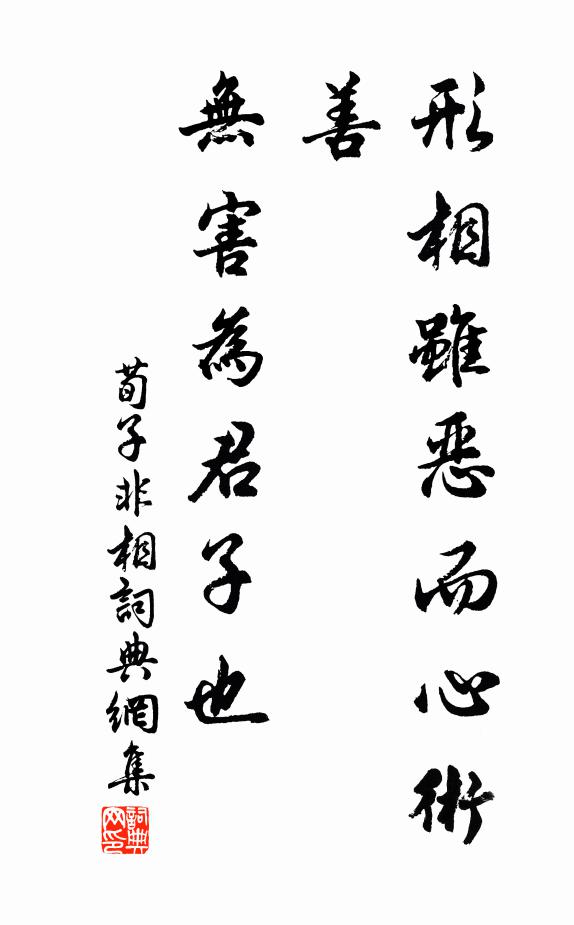 形相雖惡而心術
善
無害為君子也
荀子非相詞典網集
詞典
网印